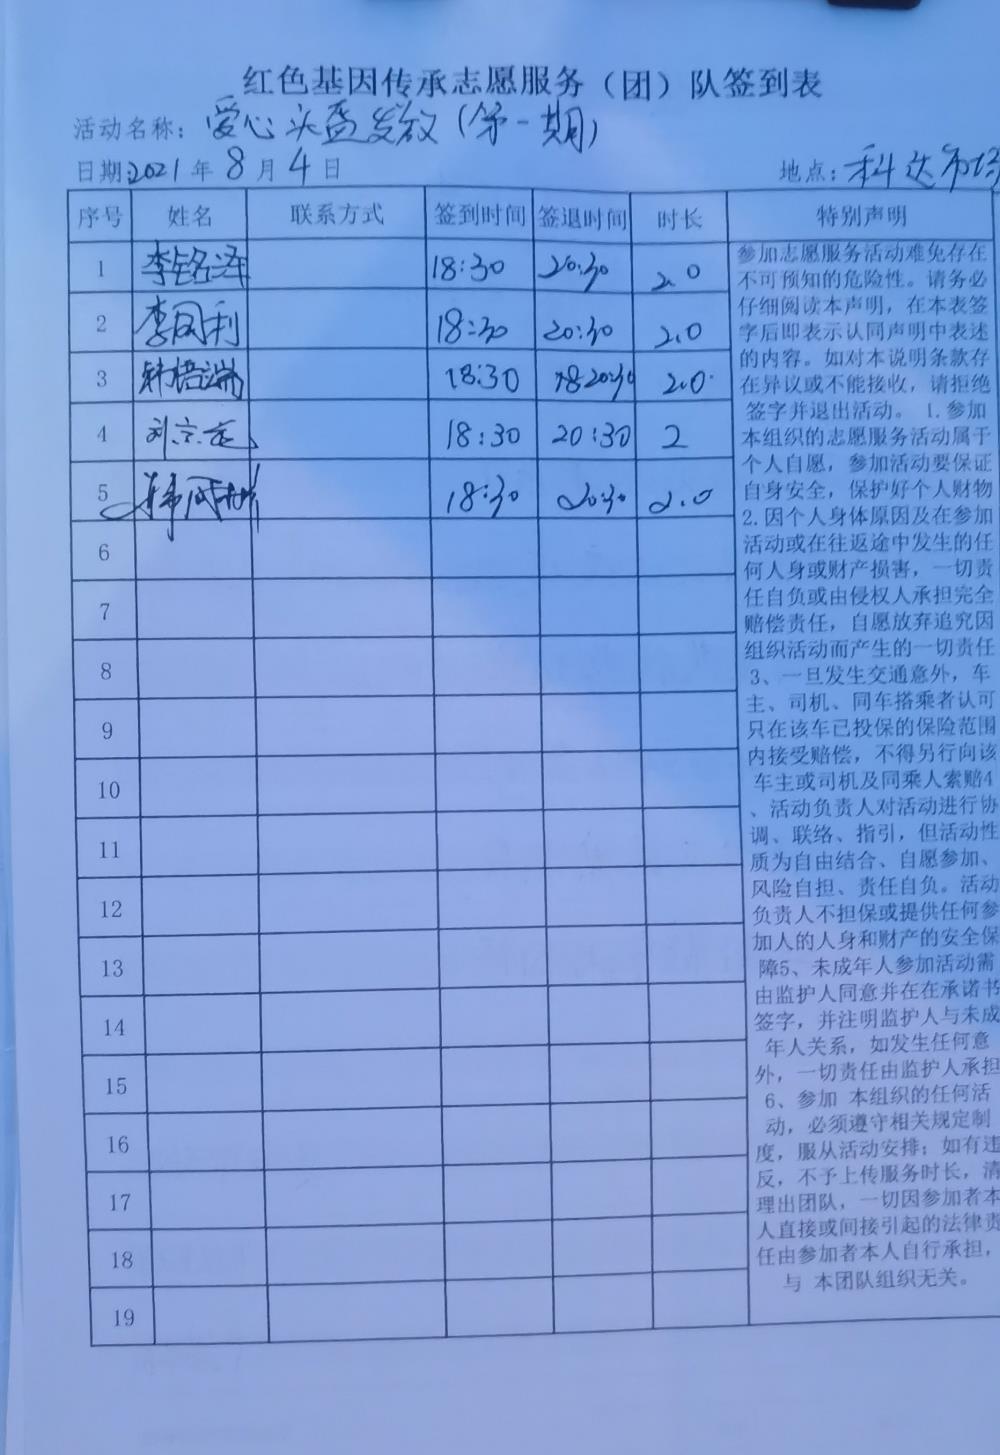 红色基因传承志愿服务（团）队签到表
活动名称：爱心头盔发放（第一期）
日期:2021年8月4日 地点：科达市场
序号 姓名 联系方式 签到时间 签退时间 时长 特别声明
1 李铭泽 18:30 20:30 2.0
2 李凤利 18:30 20:30 2.0
3 18:30 20:30 2.0
4 18:30 20:30 2
5 18:30 20:30 2.0
6
7
8
9
10
11
12
13
14
15
16
17
18
19
参加志愿服务活动难免存在
不可预知的危险性。请务必
仔细阅读本声明，在本表签
字后即表示认同声明中表述
的内容。如对本说明条款存
在异议或不能接收，请拒绝
签字并退出活动。 1.参加
本组织的志愿服务活动属于
个人自愿，参加活动要保证
自身安全，保护好个人财物
2.因个人身体原因及在参加
活动或在往返途中发生的任
何人身或财产损害，一切责
任自负或由侵权人承担完全
赔偿责任，自愿放弃追究因
组织活动而产生的一切责任
3、一旦发生交通意外，车
主、司机、同车搭乘者认可
只在该车已投保的保险范围
内接受赔偿，不得另行向该
车主或司机及同乘人索赔4
、活动负责人对活动进行协
调、联络、指引，但活动性
质为自由结合、自愿参加、
风险自担、责任自负。活动
负责人不担保或提供任何参
加人的人身和财产的安全保
障5、未成年人参加活动需
由监护人同意并在在承诺书
签字，并注明监护人与未成
年人关系，如发生任何意
外，一切责任由监护人承担
6、参加 本组织的任何活
动，必须遵守相关规定制
度，服从活动安排；如有违
反，不予上传服务时长，清
理出团队，一切因参加者本
人直接或间接引起的法律责
任由参加者本人自行承担，
与 本团队组织无关。